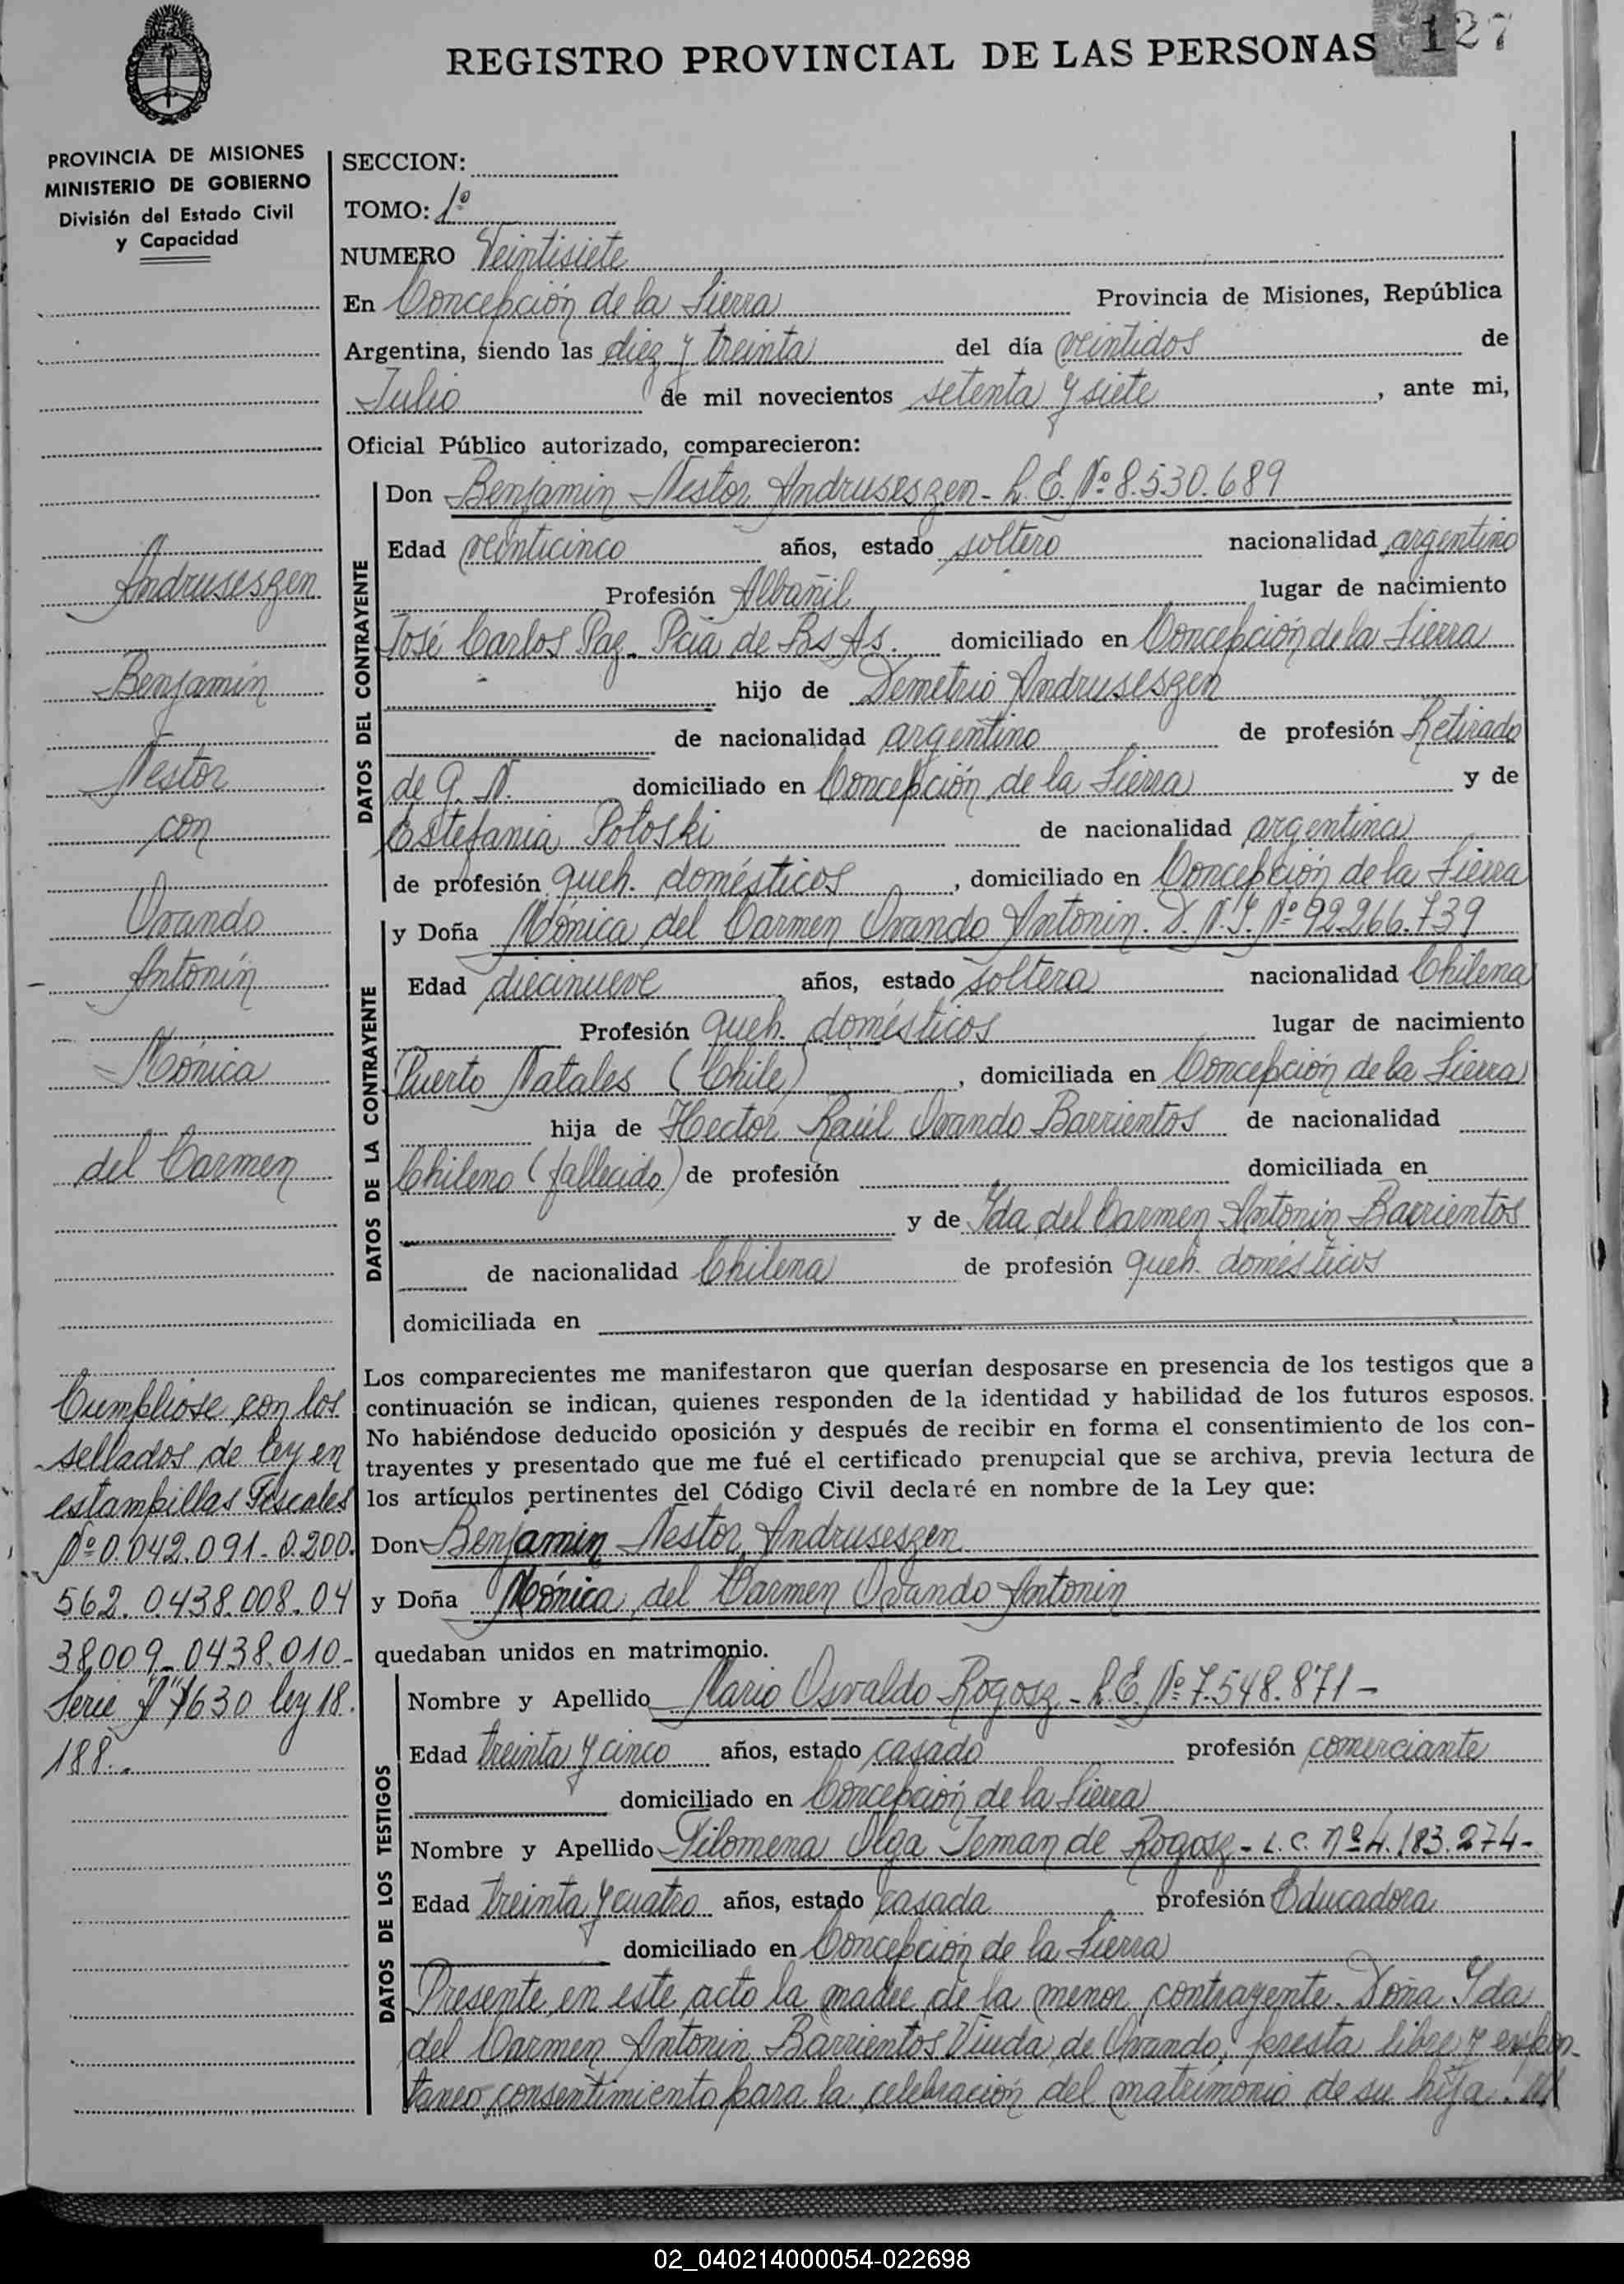 127
REGISTRO PROVINCIAL DE LAS PERSONAS
PROVINCIA DE MISIONES
MINISTERIO DE GOBIERNO
División del Estado Civil
y Capacidad
SECCION:
TOMO: 1º
NUMERO Veintisiete
En Concepción de la Sierra Provincia de Misiones, República
Argentina, siendo las diez y treinta del día veintidos de
Julio de mil novecientos setenta y siete, ante mi,
Oficial Público autorizado, comparecieron:
DATOS DEL CONTRAYENTE
Don Benjamin Nestor Andruseszen - L.E. Nº 8.530.689
Edad veinticinco años, estado soltero nacionalidad argentino
Profesión Albañil lugar de nacimiento
José Carlos Paz - Pcia de Bs As. domiciliado en Concepción de la Sierra
hijo de Demetrio Andruseszen
de nacionalidad argentino de profesión Retirado
de G. N. domiciliado en Concepción de la Sierra y de
Estefania Potoski de nacionalidad argentina
de profesión queh. domésticos, domiciliado en Concepción de la Sierra
DATOS DE LA CONTRAYENTE
y Doña Mónica del Carmen Ovando Antonin. D.N.I. Nº 92.266.739
Edad diecinueve años, estado soltera nacionalidad Chilena
Profesión queh. domésticos lugar de nacimiento
Puerto Natales (Chile), domiciliada en Concepción de la Sierra
hija de Hector Raúl Ovando Barrientos de nacionalidad
Chileno (fallecido) de profesión domiciliada en
y de Yda del Carmen Antonin Barrientos
de nacionalidad Chilena de profesión queh. domésticos
domiciliada en
Los comparecientes me manifestaron que querían desposarse en presencia de los testigos que a
continuación se indican, quienes responden de la identidad y habilidad de los futuros esposos.
No habiéndose deducido oposición y después de recibir en forma el consentimiento de los con-
trayentes y presentado que me fué el certificado prenupcial que se archiva, previa lectura de
los artículos pertinentes del Código Civil declaré en nombre de la Ley que:
Don Benjamin Nestor Andruseszen
y Doña Mónica del Carmen Ovando Antonin
quedaban unidos en matrimonio.
DATOS DE LOS TESTIGOS
Nombre y Apellido Mario Osvaldo Rogosz - L.E. Nº 7.548.871 -
Edad treinta y cinco años, estado casado profesión comerciante
domiciliado en Concepción de la Sierra
Nombre y Apellido Filomena Olga Teman de Rogosz - L.C. nº 4.183.274 -
Edad treinta y cuatro años, estado casada profesión Educadora
domiciliado en Concepción de la Sierra
Presente en este acto la madre de la menor contrayente. Doña Yda
del Carmen Antonin Barrientos Viuda de Ovando, presta libre y espon-
taneo consentimiento para la celebración del matrimonio de su hija.
Andruseszen
Benjamín
Nestor
con
Ovando
Antonín
Mónica
del Carmen
Cumpliose con los
sellados de ley en
estampillas Fiscales
Nº 0.042.091-0.200.
562. 0.438.008.04
38.009-0438.010-
Serie "A" 7630 ley 18.
188..
02_040214000054-022698